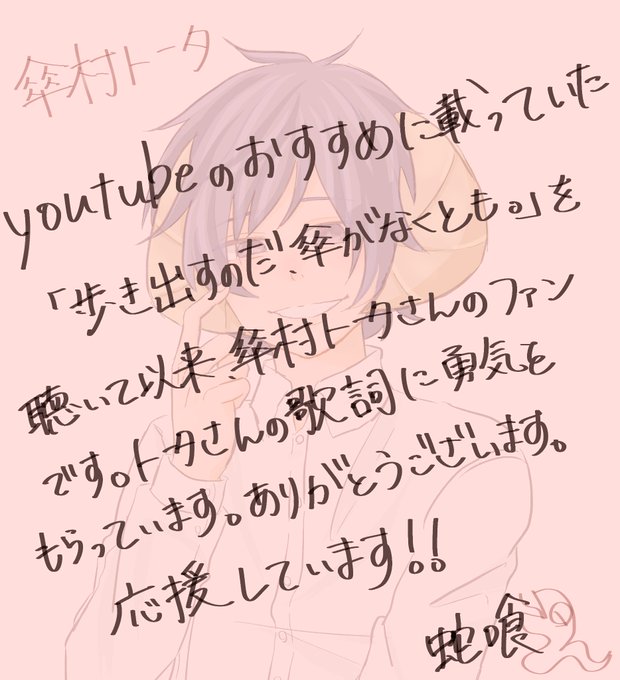 傘村トータ
youtubeのおすすめに載っていた
「歩き出すのだ 傘がなくとも。」を
聴いて以来、傘村トータさんのファン
です。トータさんの歌詞に勇気を
もらっています。ありがとうございます。
応援しています!!
蛇喰